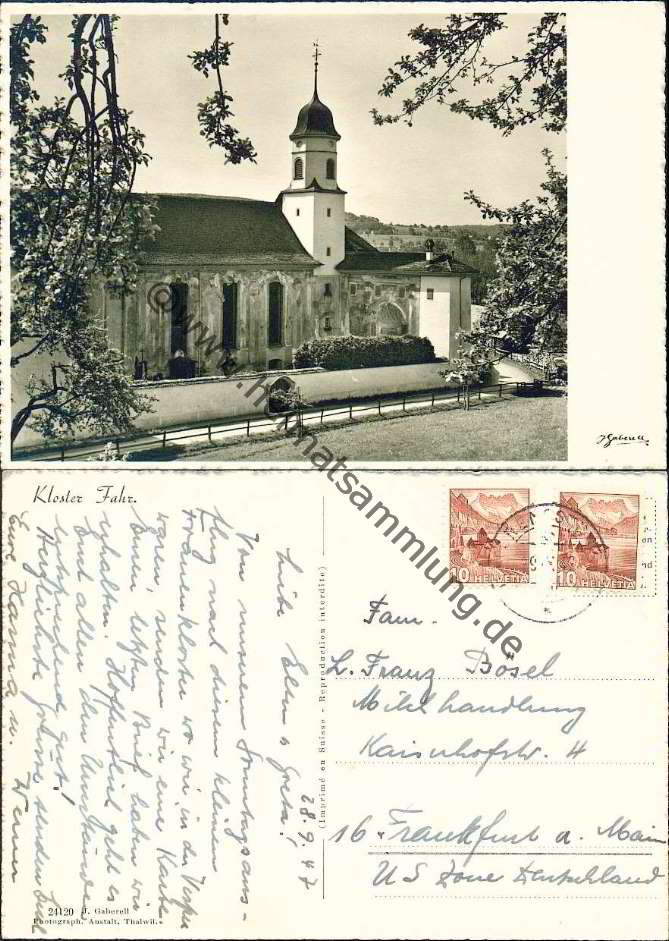 J Gaberell
© www.heimatsammlung.de
Kloster Fahr.
10 HELVETIA
10 HELVETIA
Fam.
L. Franz Bösel
Milchhandlung
Kaiserhofstr. 4
16 Frankfurt a. Main
US Zone Deutschland
(Imprimé en Suisse - Reproduction interdite)
28.9.47
Liebe Eltern & Greta!
Von unserem Sonntagsaus-
flug nach diesem kleinen
Frauenkloster wo wir in der Vesper
waren, senden wir eine Karte
Einen letzten Brief haben wir
erhalten. Hoffentlich geht es
Euch allen den Umständen
entsprechend gut!
Herzlichste Grüsse senden
Eure Hanna u. Werner
24120 J. Gaberell
Photograph. Anstalt, Thalwil.